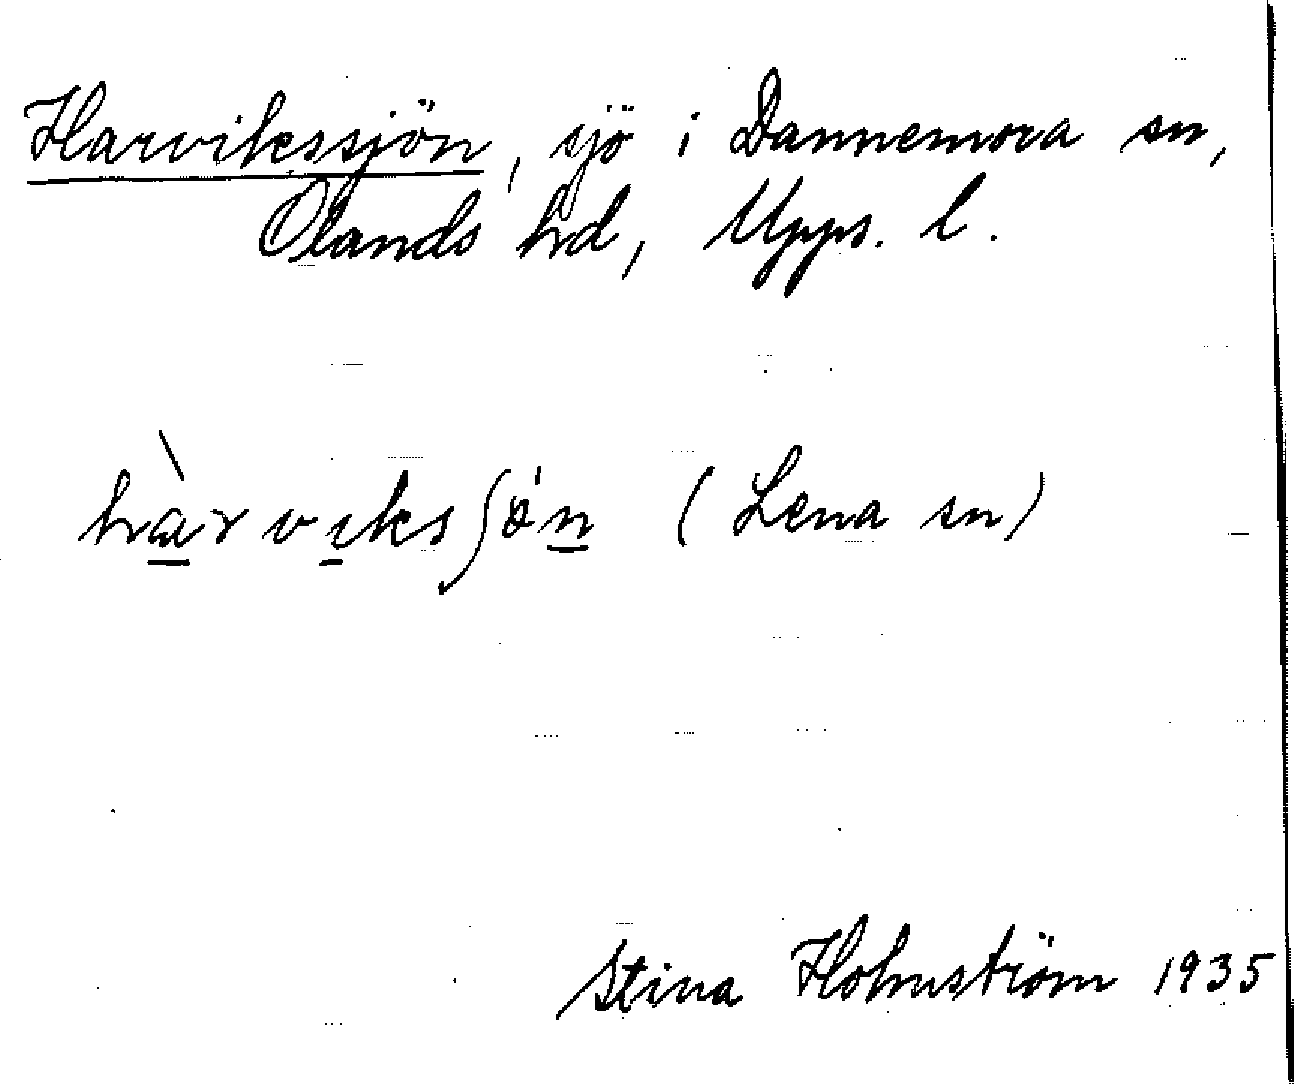 Harvikssjön, sjö i Dannemora sn,
Olands hd, Upps. l.
hàrviksʃö́n (Lena sn)
Stina Holmström 1935